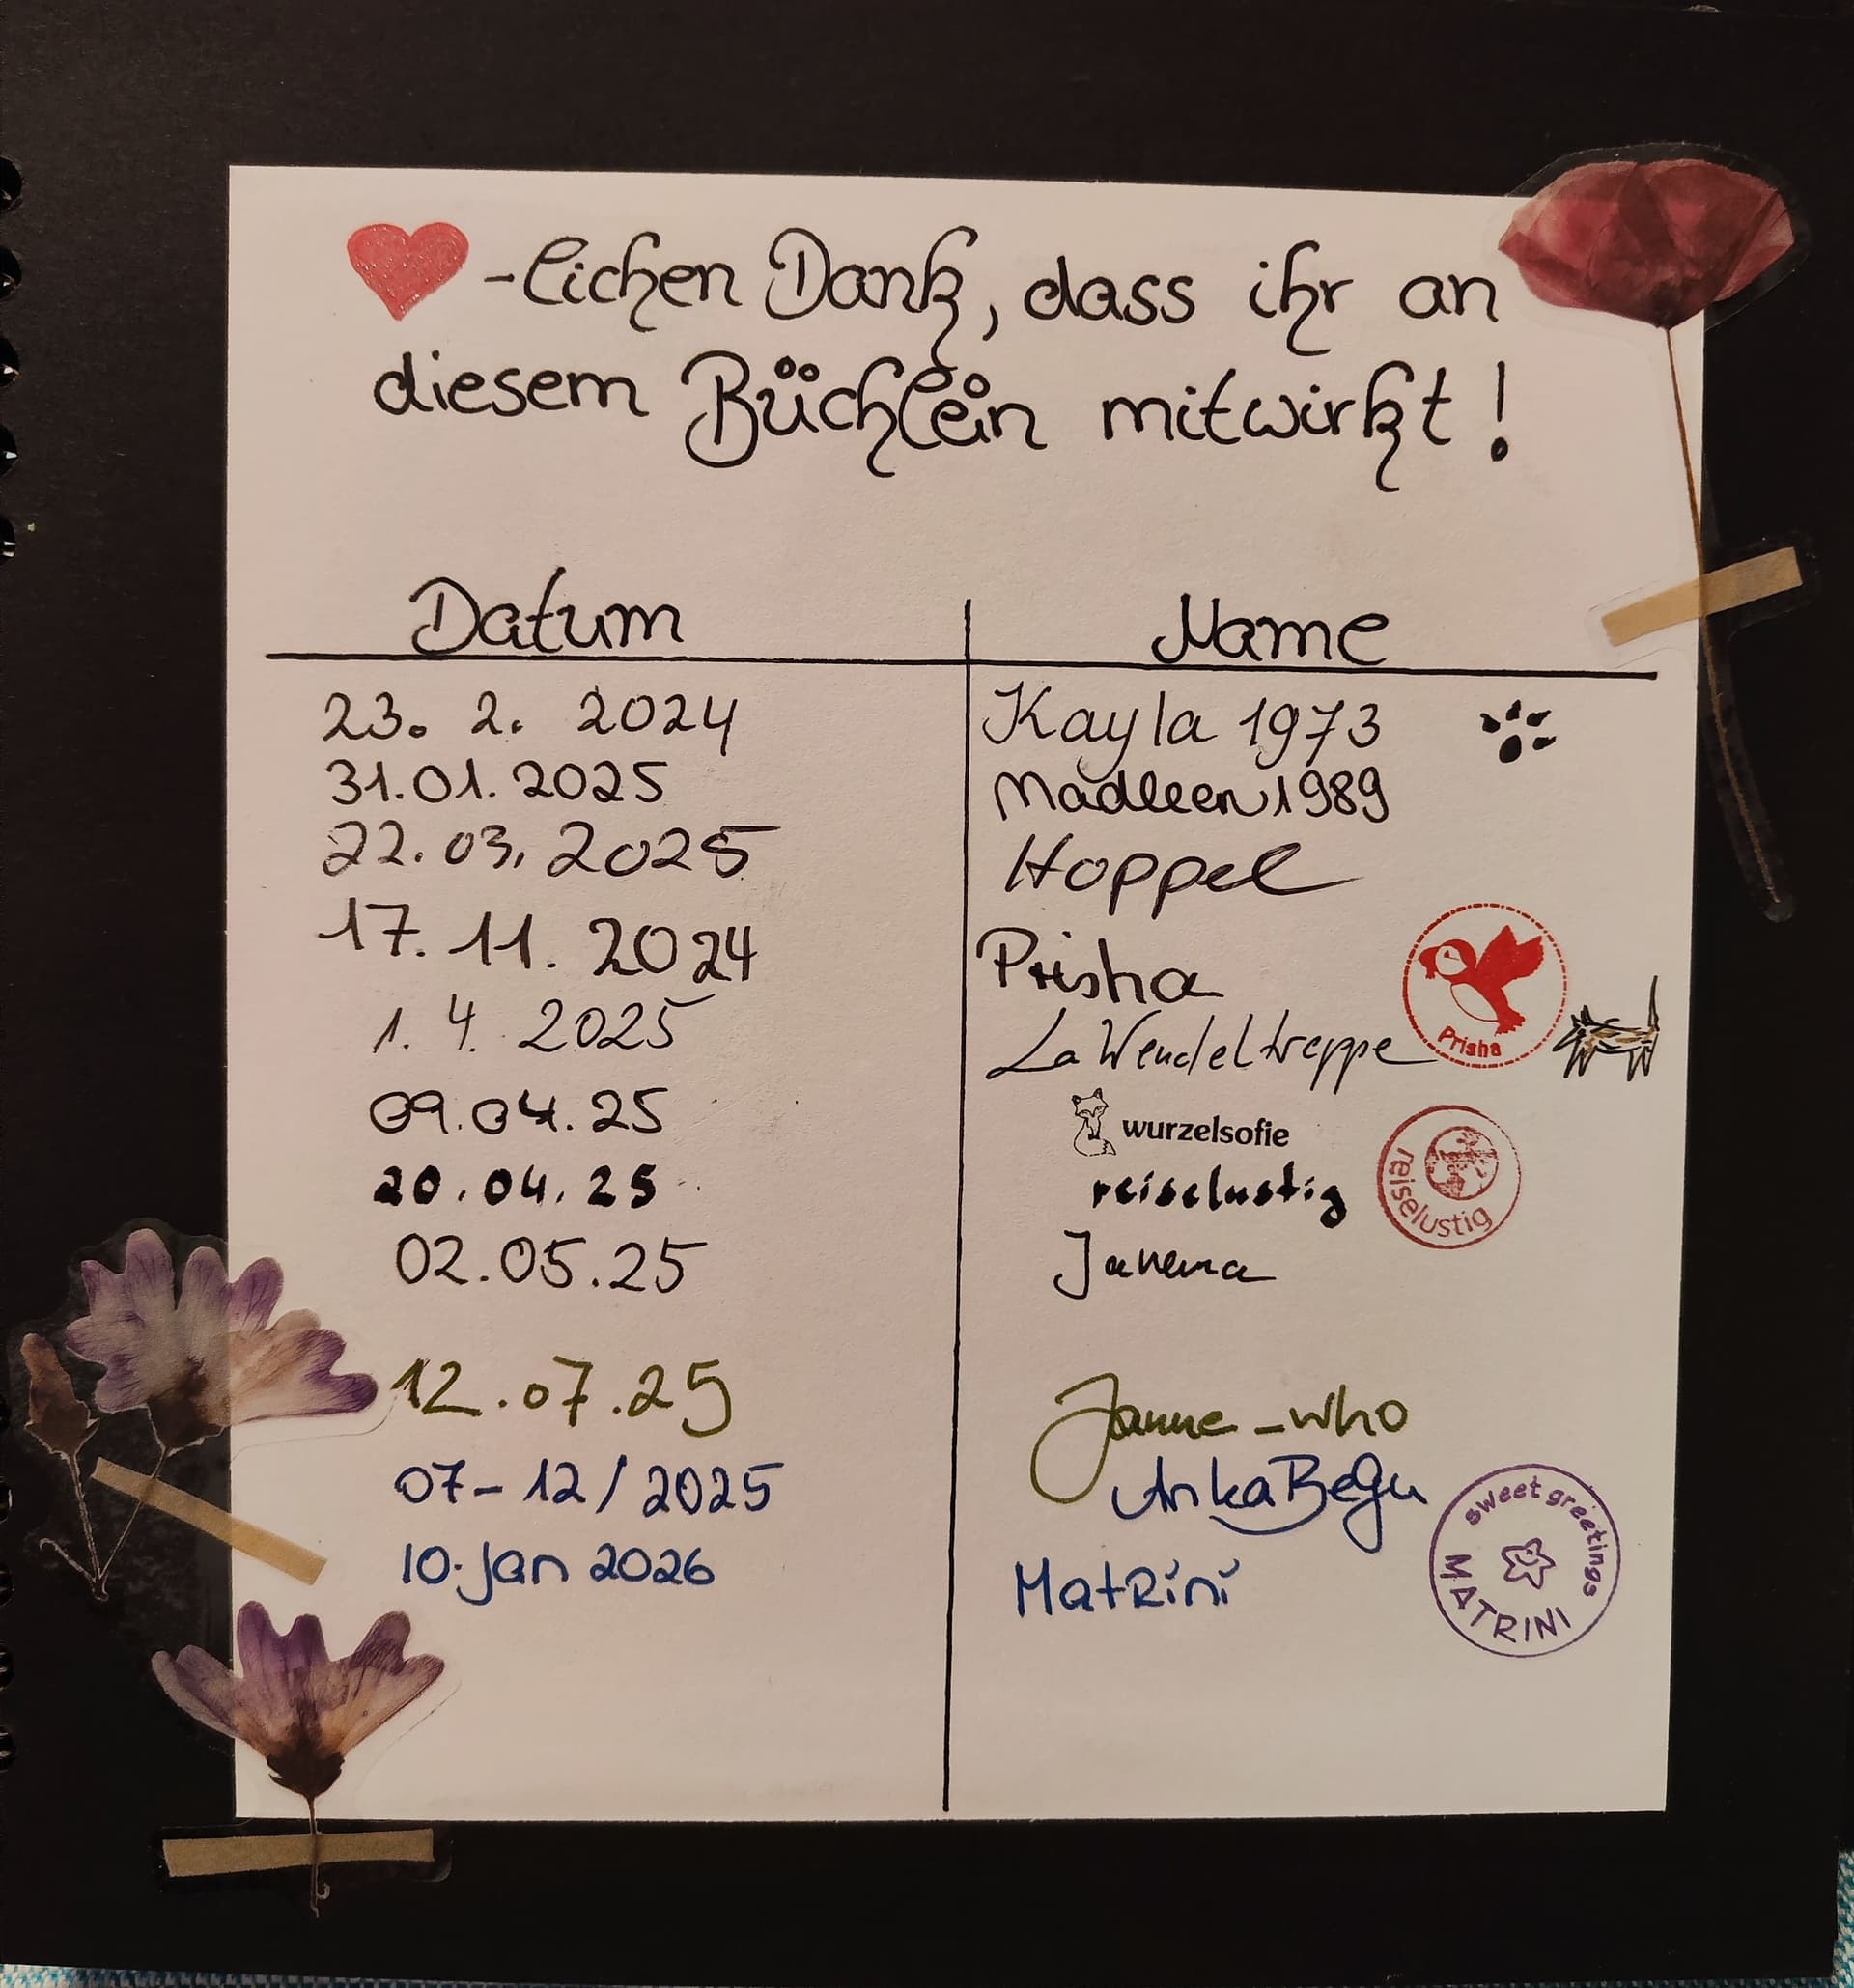 -lichen Dank, dass ihr an
diesem Büchlein mitwirkt!
Datum Name
23. 2. 2024 Kayla 1973
31.01.2025 Madleen1989
22.03.2025 Hoppel
17.11.2024 Prisha
Prisha
1. 4. 2025 La Wendeltreppe
09.04.25 wurzelsofie
20.04.25 reiselustig
reiselustig
02.05.25 Janema
12.07.25 Janne_who
07-12/2025 AnkaBegu
10. Jan 2026 Matrini
sweet greetings
MATRINI